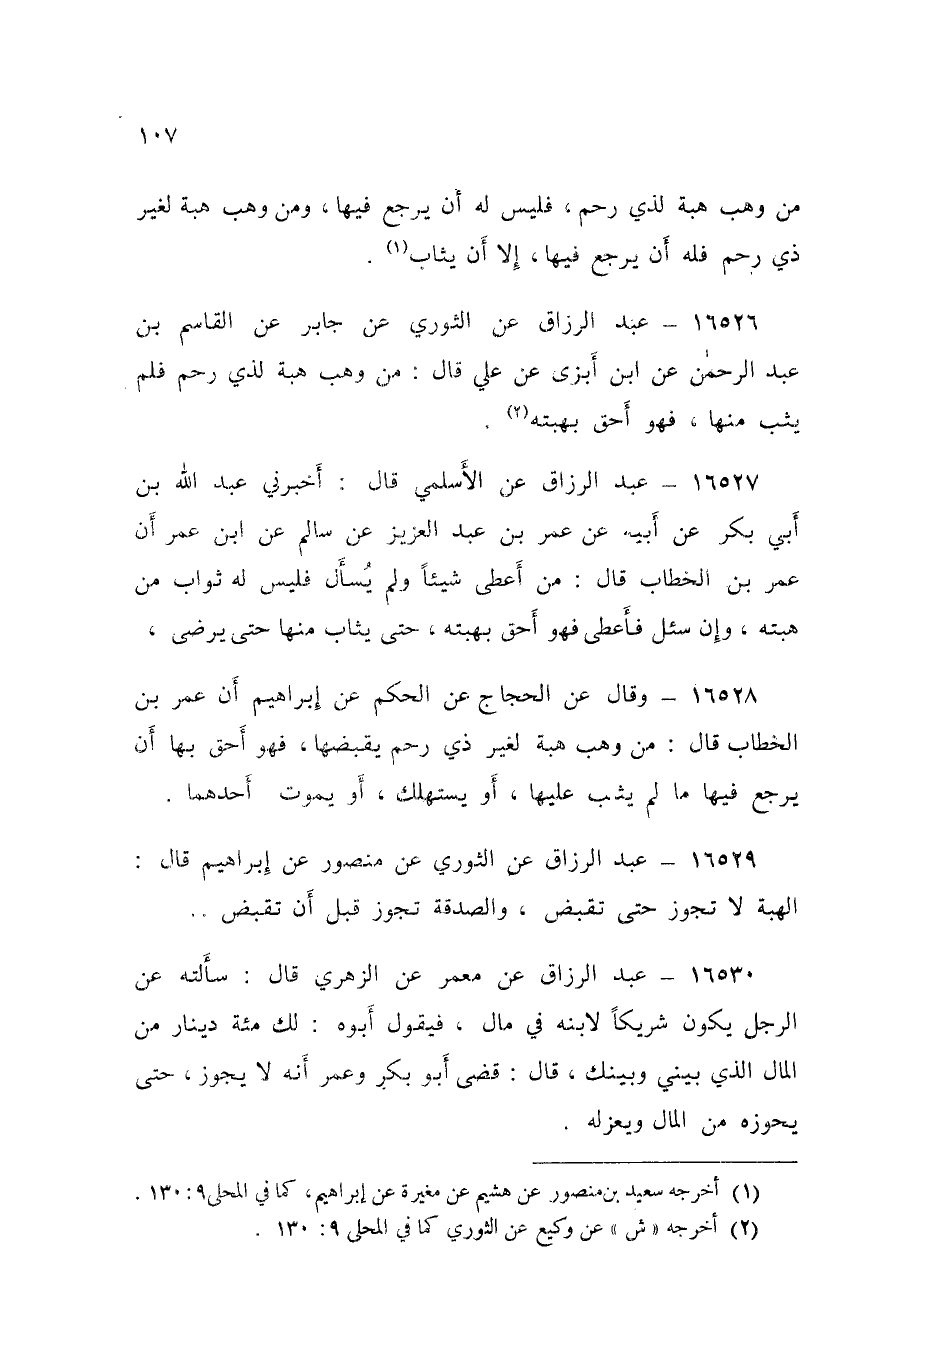 ١٠٧
من وهب هبة لذي رحم ، فليس له أن يرجع فيها ، ومن وهب هبة لغير
ذي رحم فله أن يرجع فيها ، إلا أن يثاب(١) .
١٦٥٢٦ – عبد الرزاق عن الثوري عن جابر عن القاسم بن
عبد الرحمٰن عن ابن أَبزى عن علي قال : من وهب هبة لذي رحم فلم
يثب منها ، فهو أَحق بهبته(٢) .
١٦٥٢٧ – عبد الرزاق عن الأَسلمي قال : أَخبرني عبد الله بن
أَبي بكر عن أَبيه عن عمر بن عبد العزيز عن سالم عن ابن عمر أَن
عمر بن الخطاب قال : من أَعطى شيئاً ولم يُسأَل فليس له ثواب من
هبته ، وإن سئل فأَعطى فهو أَحق بهبته ، حتى يثاب منها حتى يرضى ،
١٦٥٢٨ – وقال عن الحجاج عن الحكم عن إبراهيم أَن عمر بن
الخطاب قال : من وهب هبة لغير ذي رحم يقبضها ، فهو أَحق بها أَن
يرجع فيها ما لم يثب عليها ، أَو يستهلك ، أَو يموت أَحدهما .
١٦٥٢٩ – عبد الرزاق عن الثوري عن منصور عن إبراهيم قال :
الهبة لا تجوز حتى تقبض ، والصدقة تجوز قبل أَن تقبض ..
١٦٥٣٠ – عبد الرزاق عن معمر عن الزهري قال : سأَلته عن
الرجل يكون شريكاً لابنه في مال ، فيقول أَبوه : لك مئة دينار من
المال الذي بيني وبينك ، قال : قضى أَبو بكر وعمر أَنه لا يجوز ، حتى
يحوزه من المال ويعزله .
(١) أخرجه سعيد بن منصور عن هشيم عن مغيرة عن إبراهيم، كما في المحلى ٩: ١٣٠ .
(٢) أخرجه « ش » عن وكيع عن الثوري كما في المحلى ٩: ١٣٠ .